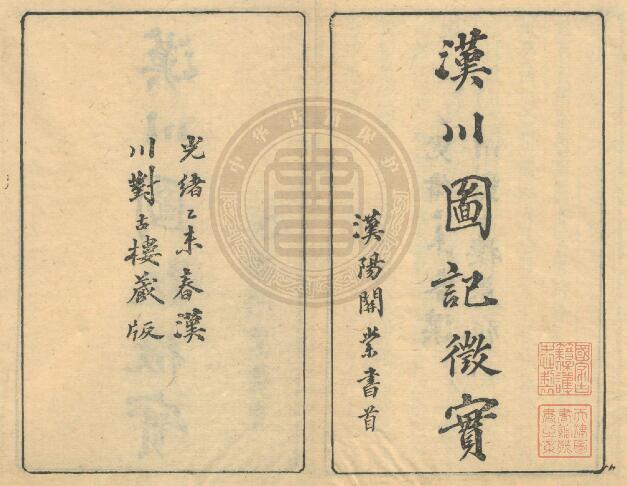 漢川圖記徵實
漢陽關棠書首
光緒乙未春漢
川對古樓藏版